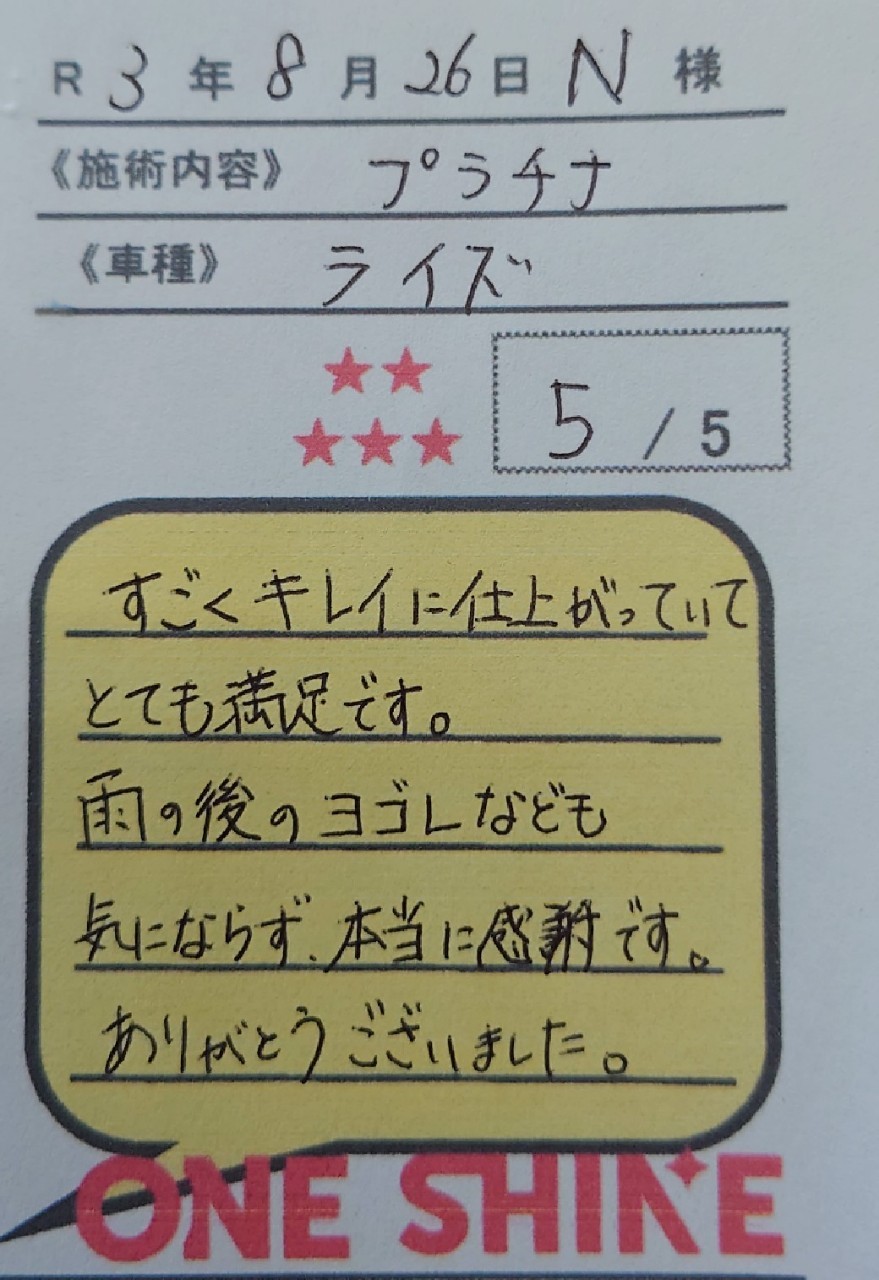 R 3 年 8 月 26 日 N 様
《施術内容》 プラチナ
《車種》 ライズ
5 / 5
すごくキレイに仕上がっていて
とても満足です。
雨の後のヨゴレなども
気にならず、本当に感謝です。
ありがとうございました。
ONE SHINE